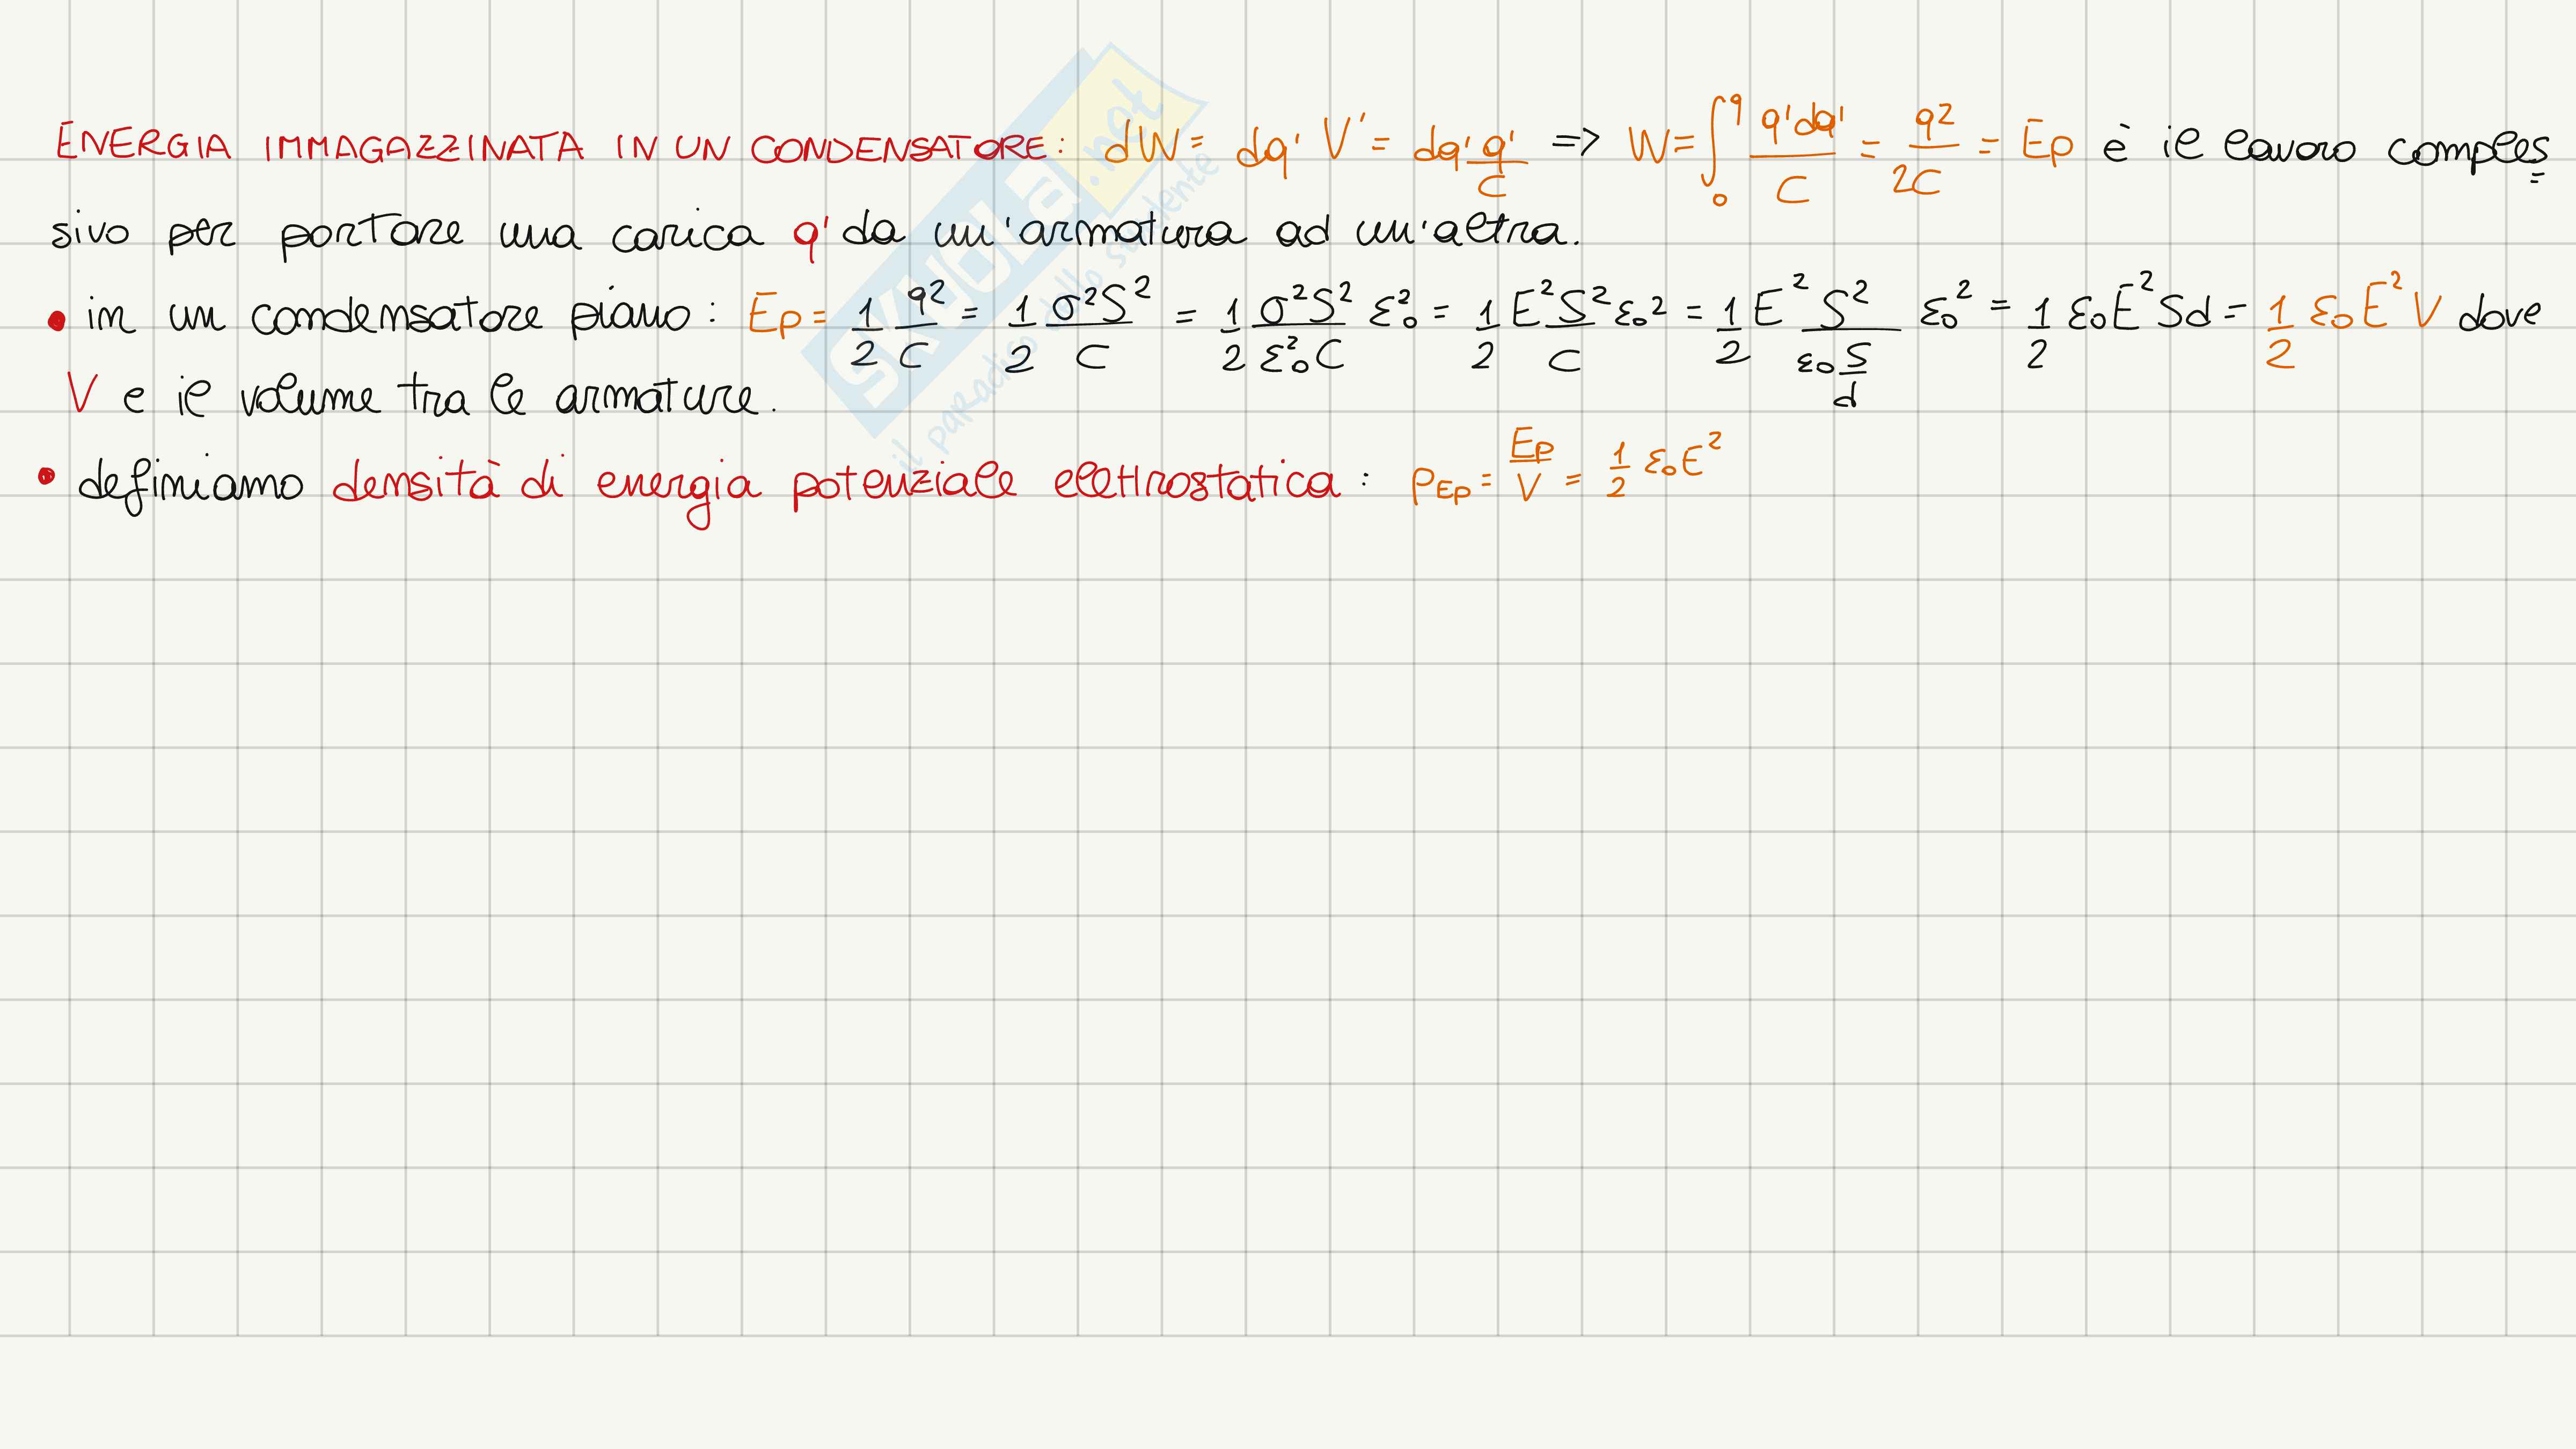 ENERGIA IMMAGAZZINATA IN UN CONDENSATORE: dW = dq' V' = dq' q'/C => W = ∫₀^q q'dq'/C = q²/2C = Ep è il lavoro comples
sivo per portare una carica q' da un'armatura ad un'altra.
• in un condensatore piano: Ep = 1/2 q²/C = 1/2 σ²S²/C = 1/2 σ²S²/ε₀²C ε₀² = 1/2 E²S²/C ε₀² = 1/2 E² S²/(ε₀ S/d) ε₀² = 1/2 ε₀E²Sd = 1/2 ε₀E²V dove
V e il volume tra le armature.
• definiamo densità di energia potenziale elettrostatica: ρEp = Ep/V = 1/2 ε₀E²
SKUOLa.net
il paradiso dello studente